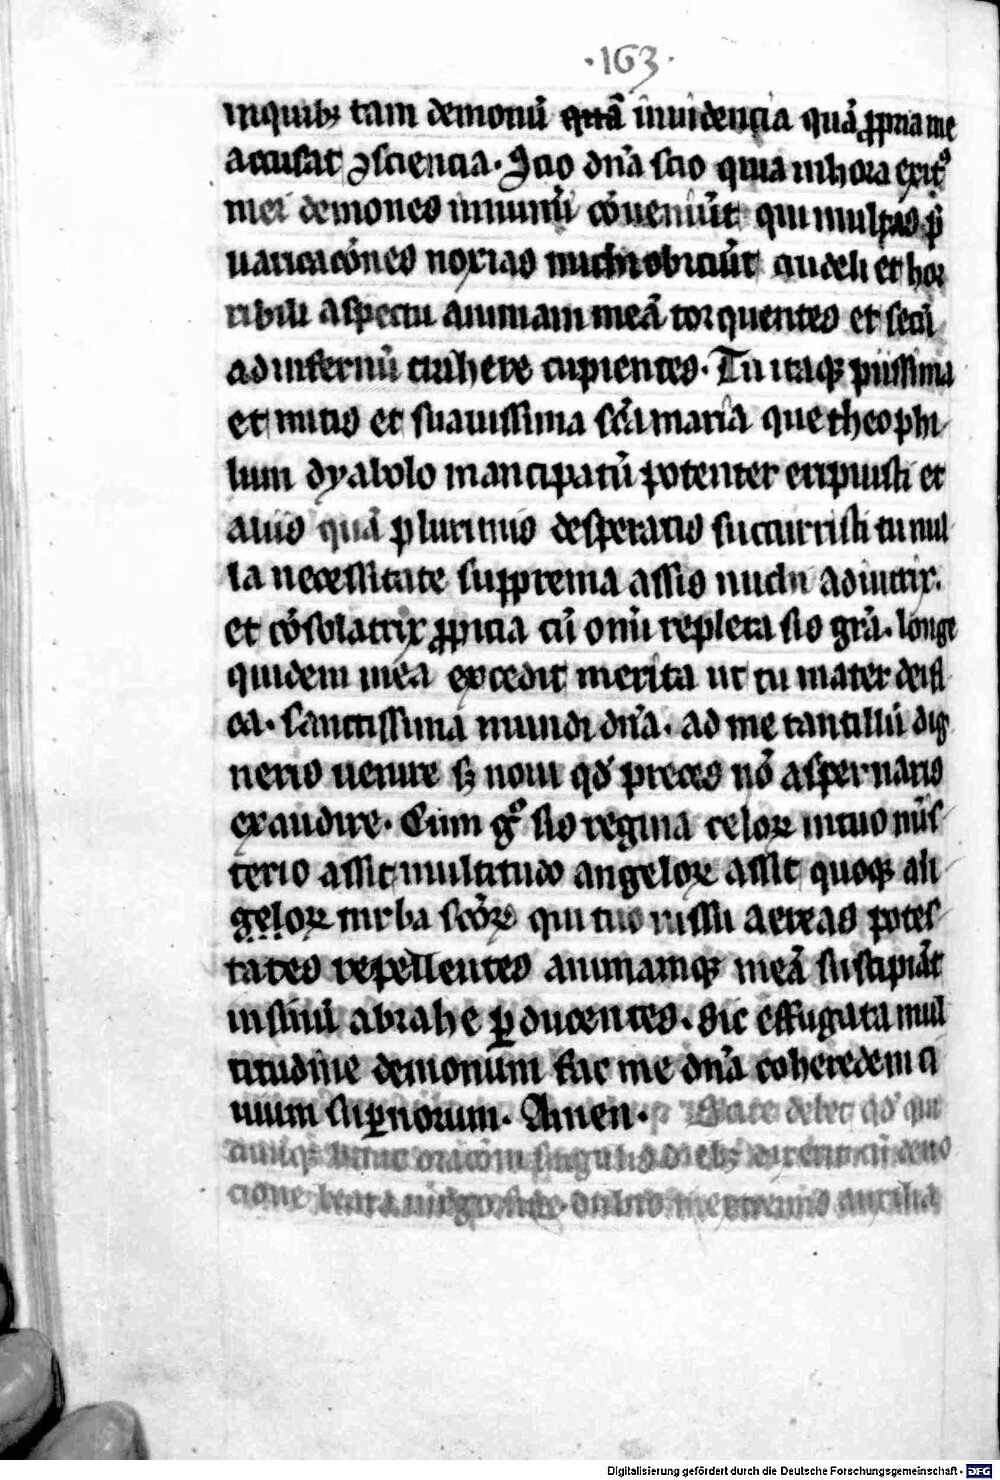 ·163·
inquibꝫ tam demonū quā inuidencia quā ꝓpria me
accusat ꝯsciencia. Scio dn̄a scio quia in hora exitꝰ
mei demones cōueniūt qui multas p̄
uaricacōnes noxias michi obiciūt crudeli et hor
ribili aspectu animam meā torquentes et secū
ad infernū trahere cupientes. Tu itaqꝫ piissima
et mitis et suauissima sc̄a maria que theophi
lum dyabolo mancipatū potenter eripuisti et
aliis quā plurimis desperatis succurristi in nul
la necessitate supprema assis michi adiutrix.
et cōsolatrix ꝓpicia cū om̄i repleta sis gr̄a. longe
quidem mea excedit merita ut tu mater deifi
ca. sanctissima mundi dn̄a. ad me tantillū dig
neris uenire sꝫ noui qd̓ preces nō aspernaris
exaudire. Cum gͦ sis regina celoꝝ in tuo mīs
terio assit multitudo angeloꝝ assit quoqꝫ ali
geloꝝ turba sc̄oꝝ qui tuo iussu aereas potes
tates repellentes animamqꝫ meā suscipiāt
in sinū abrahe ꝑducentes. Sic effugata mul
titudine demonum fac me dn̄a coheredem ci
uium suꝑnorum. Amen. Scire debet qd̓ qui
cunqꝫ hanc oracōm singulis diebꝫ dixerit cū deuo
cione beata uirgo in extremis auxilia